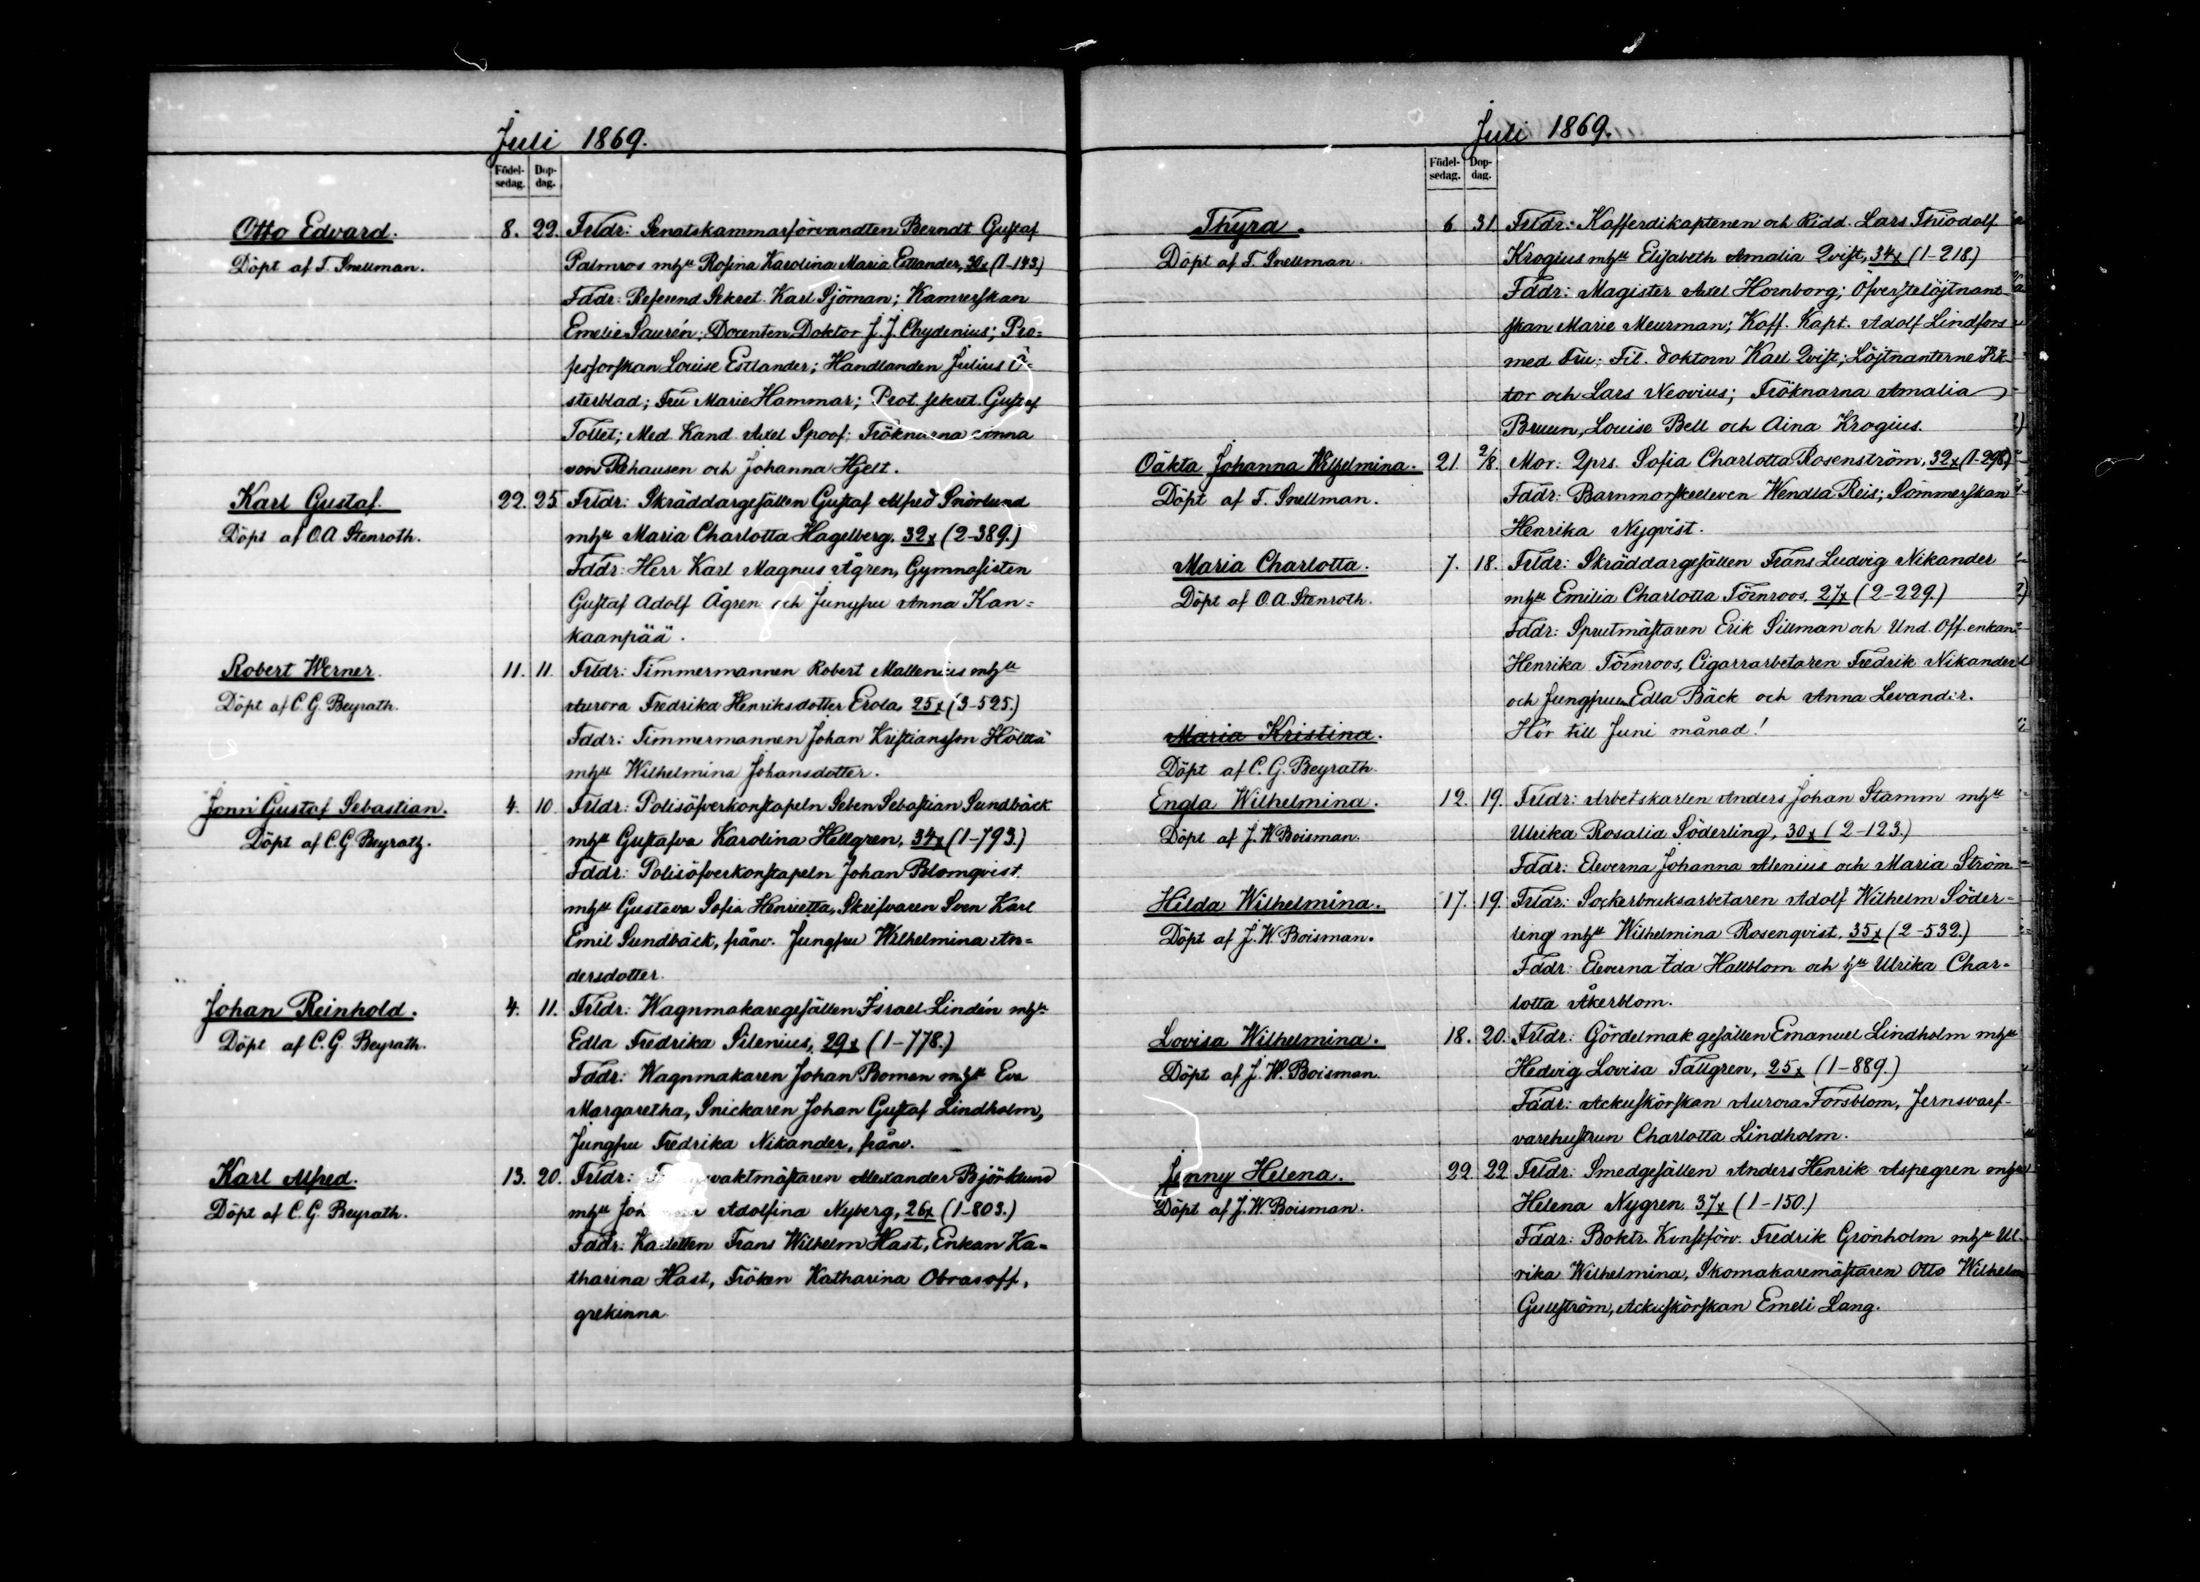 Juli 1869.
Födel-
sedag.
Dop-
dag.
Otto Edvard. 8. 22. Frldr: Senatskammarförvandten Berndt Gustaf
Döpt af T. Snellman. Palmros mhu Rosina Karolina Maria Estlander, 30x (1-143)
Fddr: Referend Sekret. Karl Sjöman; Kamrerskan
Emelie Saurén; Docenten Doktor J. J. Chydenius; Pro=
fessorskan Louise Estlander; Handlanden Julius Ö=
sterblad; Fru Marie Hammar; Prot. sekret. Gustaf
Tollet; Med. Kand. Axel Spoof; Fröknarna Anna
von Pohausen och Johanna Hjelt.
Karl Gustaf. 22. 25. Frldr: Skräddargesällen Gustaf Alfred Snörlund
Döpt af O.A. Stenroth. mhu Maria Charlotta Hagelberg. 32x (2-389.)
Fddr: Herr Karl Magnus Ågren, Gymnasisten
Gustaf Adolf Ågren och Jungfru Anna Kan=
kaanpää.
Robert Werner. 11. 11. Frldr: Timmermannen Robert Mallenius mhu
Döpt af C. G. Beyrath. Aurora Fredrika Henriksdotter Erola, 25x (3-525.)
Fddr: Timmermannen Johan Kristiansson Hölttä
mhu Wilhelmina Johansdotter.
Jonn Gustaf Sebastian. 4. 10. Frldr: Polisöfverkonstapeln Seben Sebastian Sundbäck
Döpt af C. G. Beyrath. mhu Gustafva Karolina Hellgren, 34x (1-793.)
Fddr: Polisöfverkonstapeln Johan Blomqvist
mhu Gustava Sofia Henrietta, Skrifvaren Sven Karl
Emil Sundbäck, frånv. Jungfru Wilhelmina An=
dersdotter.
Johan Reinhold. 4. 11. Frldr: Wagnmakaregesällen Israel Lindén mhu
Döpt af C. G. Beyrath. Edla Fredrika Silenius, 29x (1-778.)
Fddr: Wagnmakaren Johan Boman mhu Eva
Margaretha, Snickaren Johan Gustaf Lindholm,
Jungfru Fredrika Nikander, frånv.
Karl Alfred. 13. 20. Frldr: vaktmästaren Alexander Björklund
Döpt af C. G. Beyrath. mhu Adolfina Nyberg, 26x (1-803.)
Fddr: Kadetten Frans Wilhelm Hast, Enkan Ka=
tharina Hast, Fröken Katharina Obrasoff,
grekinna.
Juli 1869.
Födel-
sedag.
Dop-
dag.
Thyra. 6 31 Frldr: Kofferdikaptenen och Ridd. Lars Thiodolf
Döpt af T. Snellman. Krogius mhu Elisabeth Amalia Qvist, 34x (1-218)
Fddr: Magister Axel Hornborg; Öfverstelöjtnant-
skan Marie Meurman; Koff. Kapt. Adolf Lindfors
med Fru; Fil. doktorn Karl Qvist; Löjtnanterne Vik-
tor och Lars Neovius; Fröknarna Amalia
Bruun, Louise Bell och Aina Krogius.
Oäkta Johanna Wilhelmina. 21. 2/8. Mor: Qprs. Sofia Charlotta Rosenström, 32x (1-298)
Döpt af T. Snellman. Fddr: Barnmorskeeleven Wendla Reis; Sömmerskan
Henrika Nyqvist.
Maria Charlotta. 7. 18. Frldr: Skräddargesällen Frans Ludvig Nikander
Döpt af O.A. Stenroth. mhu Emilia Charlotta Törnroos, 27x (2-229.)
Fddr: Sprutmästaren Erik Sillman och Und. Off. enkan
Henrika Törnroos, Cigarrarbetaren Fredrik Nikander
och Jungfrun Edla Bäck och Anna Levander.
Maria Kristina. Hör till Juni månad!
Döpt af C. G. Beyrath.
Engla Wilhelmina. 12. 19. Frldr: Arbetskarlen Anders Johan Stamm mhu
Döpt af J. W. Boisman. Ulrika Rosalia Söderling, 30x (2-123.)
Fddr: Eleverna Johanna Alenius och Maria Ström
Hilda Wilhelmina. 17. 19. Frldr: Sockerbruksarbetaren Adolf Wilhelm Söder=
Döpt af J. W. Boisman. ling mhu Wilhelmina Rosenqvist, 35x (2-532.)
Fddr: Eleverna Ida Hallblom och hu Ulrika Char=
lotta Åkerblom.
Lovisa Wilhelmina. 18. 20. Frldr: Gördelmak gesällen Emanuel Lindholm mhu
Döpt af J. W. Boisman. Hedvig Lovisa Tallgren, 25x (1-889.)
Fddr: Ackuskörskan Aurora Forsblom, Jernsvarf-
varehustrun Charlotta Lindholm.
Jenny Helena. 22. 22 Frldr: Smedgesällen Anders Henrik Aspegren mhu
Döpt af J. W. Boisman. Helena Nygren, 37x (1-150.)
Fddr: Boktr. Konstförv. Fredrik Grönholm mhu Ul-
rika Wilhelmina, Skomakaremästaren Otto Wilhelm
Gullström, Ackuskörskan Emeli Lang.